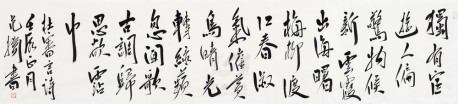 獨有宦
遊人偏
驚物候
新雲霞
出海曙
梅柳渡
江春淑
氣催黃
鳥晴光
轉綠蘋
忽聞歌
古調歸
思欲霑
巾
杜審言詩
壬辰正月
書